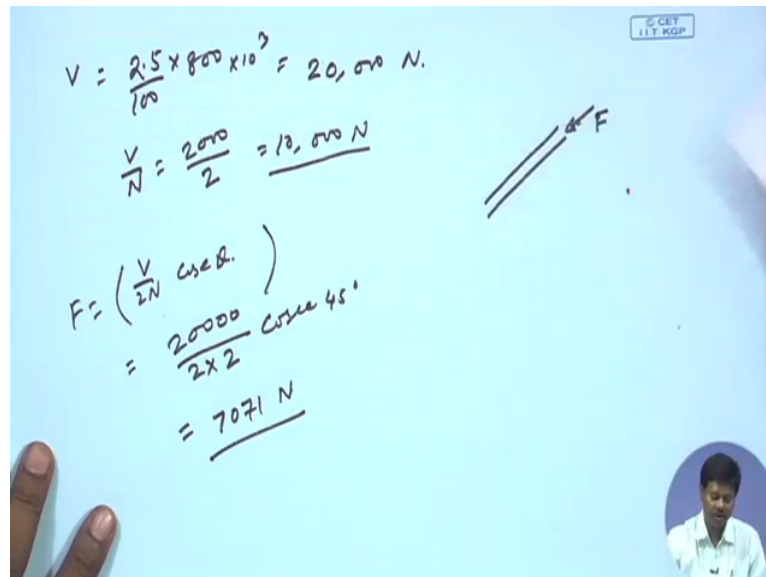 © CET
I.I.T. KGP
V = 2.5/100 × 800 × 10³ = 20,000 N.
V/N = 2000/2 = 10,000 N
F
F = (V/2N cosec θ.)
= 20000/2×2 cosec 45°
= 7071 N